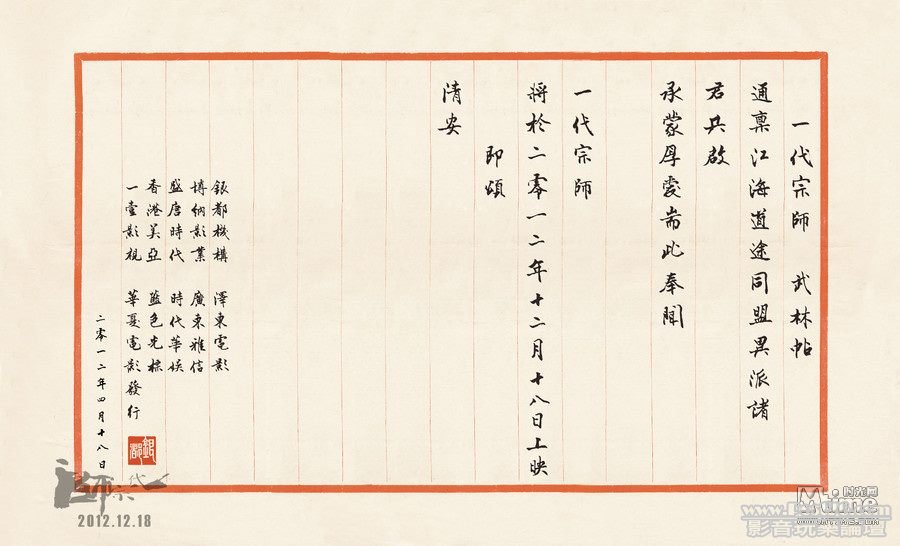 一代宗師 武林帖
通稟江海道途同盟異派諸
君共啟
承蒙厚愛耑此奉聞
一代宗師
將於二零一二年十二月十八日上映
即頌
清安
銀都機構 澤東電影
博納影業 廣東雅信
盛唐時代 時代華娛
香港美亞 藍色光標
一壹影視 華夏電影發行
二零一二年四月十八日
銀都
一代宗師
2012.12.18
時光网
Mtime
www.MTIME.com
影音玩樂論壇